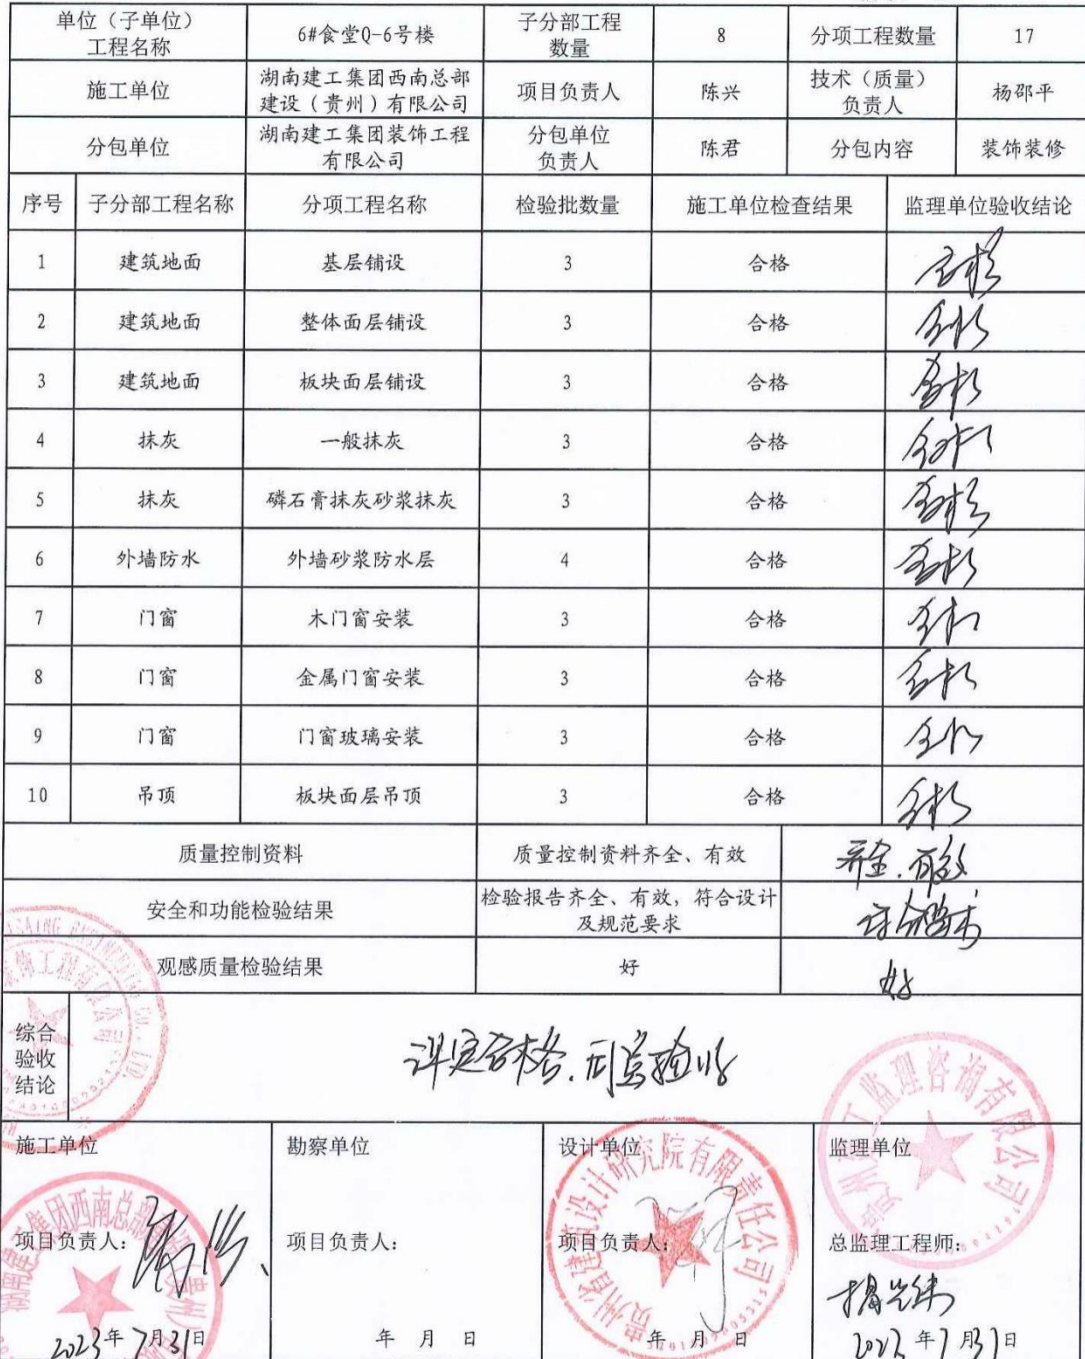 单位（子单位）
工程名称
6#食堂Q-6号楼
子分部工程
数量
8
分项工程数量
17
施工单位
湖南建工集团西南总部
建设（贵州）有限公司
项目负责人
陈兴
技术（质量）
负责人
杨邵平
分包单位
湖南建工集团装饰工程
有限公司
分包单位
负责人
陈君
分包内容
装饰装修
序号 子分部工程名称 分项工程名称 检验批数量 施工单位检查结果 监理单位验收结论
1 建筑地面 基层铺设 3 合格 合格
2 建筑地面 整体面层铺设 3 合格 合格
3 建筑地面 板块面层铺设 3 合格 合格
4 抹灰 一般抹灰 3 合格 合格
5 抹灰 磷石膏抹灰砂浆抹灰 3 合格 合格
6 外墙防水 外墙砂浆防水层 4 合格 合格
7 门窗 木门窗安装 3 合格 合格
8 门窗 金属门窗安装 3 合格 合格
9 门窗 门窗玻璃安装 3 合格 合格
10 吊顶 板块面层吊顶 3 合格 合格
质量控制资料 质量控制资料齐全、有效 齐全.有效
安全和功能检验结果
检验报告齐全、有效，符合设计
及规范要求
符合要求
观感质量检验结果 好 好
综合
验收
结论
评定合格.同意验收
施工单位 勘察单位 设计单位 监理单位
项目负责人： 项目负责人： 项目负责人： 总监理工程师：
2023年7月31日 年 月 日 年 月 日 2023年7月31日
贵州省建筑设计研究院有限责任公司
工监理咨询有限公司